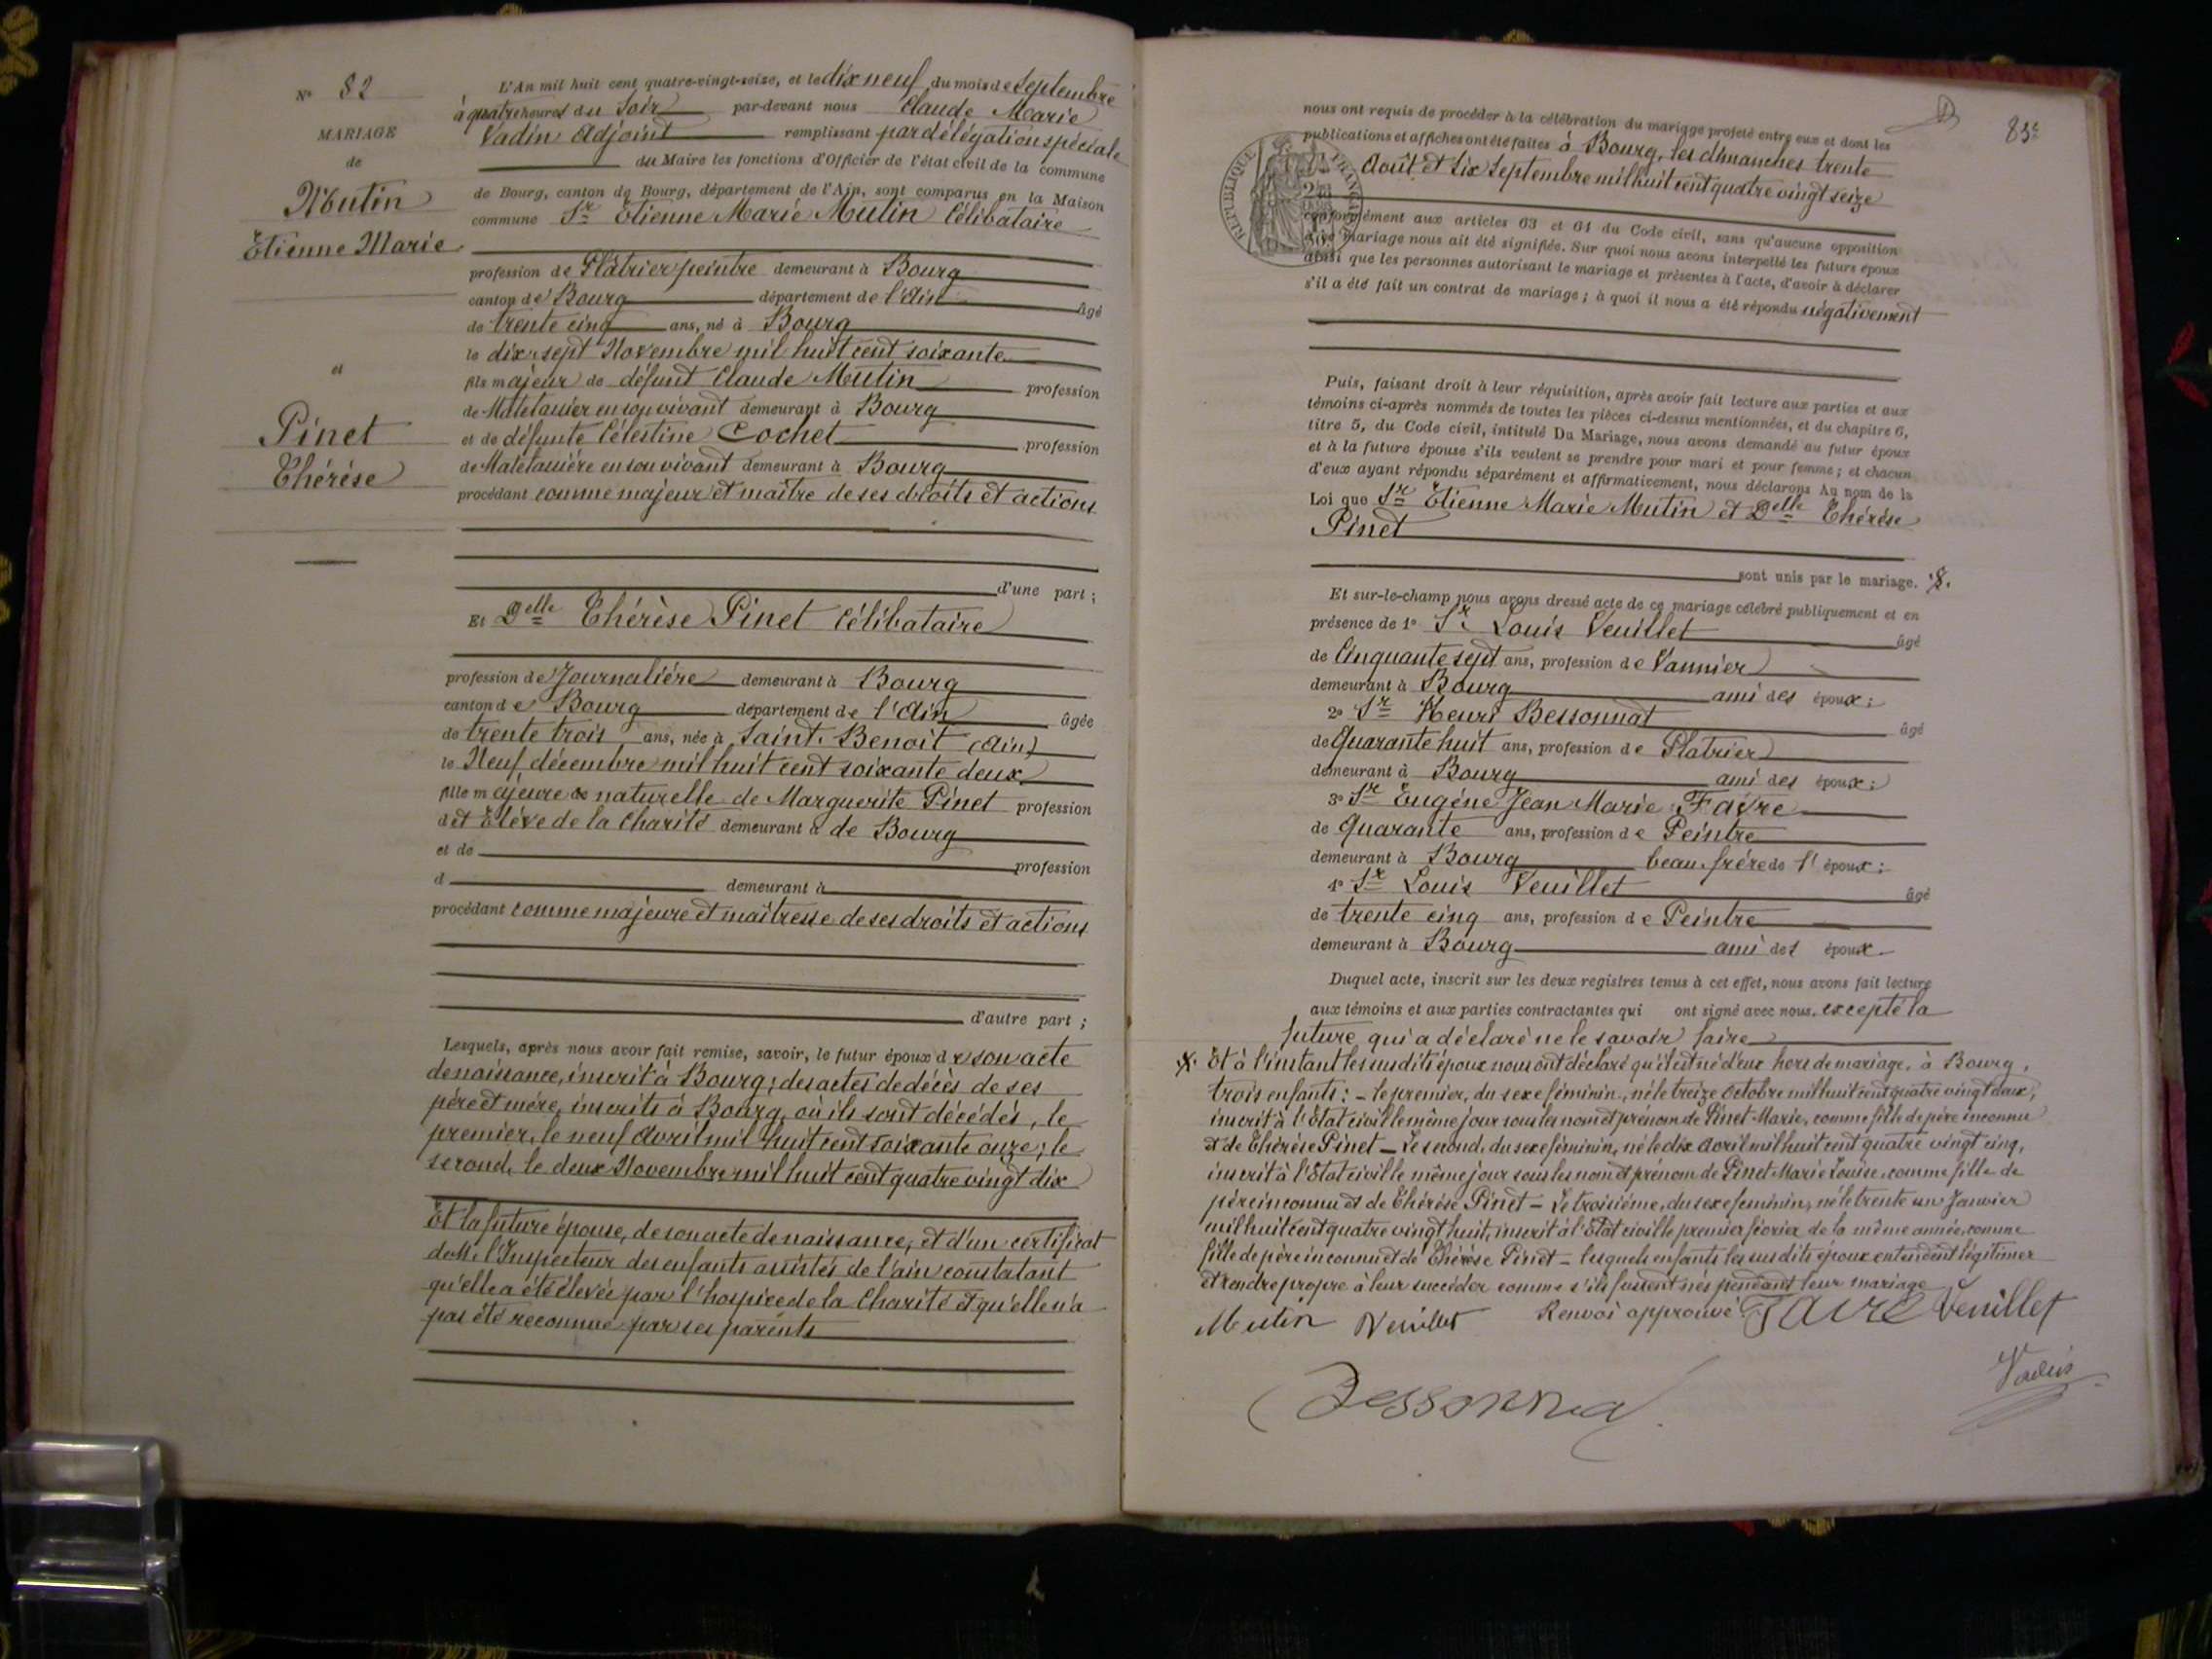 N° 82
MARIAGE
de
Mutin
Etienne Marie
et
Pinet
Thérèse
L'An mil huit cent quatre-vingt-seize, et le dix neuf du mois de Septembre
à quatre heures du Soir par-devant nous Claude Marie
Vadin Adjoint remplissant par délégation spéciale
du Maire les fonctions d'Officier de l'état civil de la commune
de Bourg, canton de Bourg, département de l'Ain, sont comparus en la Maison
commune Sr Etienne Marie Mutin Célibataire
profession de Plâtrier peintre demeurant à Bourg
canton de Bourg département de l'Ain âgé
de trente cinq ans, né à Bourg
le dix-sept Novembre mil huit cent soixante
fils majeur de défunt Claude Mutin profession
de Matelassier en son vivant demeurant à Bourg
et de défunte Célestine Cochet profession
de Matelassière en son vivant demeurant à Bourg
procédant comme majeur et maître de ses droits et actions
d'une part ;
Et Delle Thérèse Pinet Célibataire
profession de Journalière demeurant à Bourg
canton de Bourg département de l'Ain âgée
de trente trois ans, née à Saint-Benoit (Ain)
le Neuf décembre mil huit cent soixante deux
fille majeure & naturelle de Marguerite Pinet profession
d et Elève de la Charité demeurant à de Bourg
et de profession
d demeurant à
procédant comme majeure et maîtresse de ses droits et actions
d'autre part ;
Lesquels, après nous avoir fait remise, savoir, le futur époux de son acte
de naissance, inscrit à Bourg ; des actes de décès de ses
père et mère, inscrits à Bourg, où ils sont décédés, le
premier, le neuf Avril mil huit cent soixante onze ; le
second, le deux Novembre mil huit cent quatre vingt dix
Et la future épouse, de son acte de naissance, et d'un certificat
de Mr l'Inspecteur des enfants assistés de l'ain constatant
qu'elle a été élevée par l'hospice de la Charité et qu'elle n'a
pas été reconnue par ses parents
83e
nous ont requis de procéder à la célébration du mariage projeté entre eux et dont les
publications et affiches ont été faites à Bourg, les dimanches trente
Août et Six Septembre mil huit cent quatre vingt seize
RÉPUBLIQUE FRANÇAISE
conformément aux articles 63 et 64 du Code civil, sans qu'aucune opposition
à ce mariage nous ait été signifiée. Sur quoi nous avons interpellé les futurs époux
ainsi que les personnes autorisant le mariage et présentes à l'acte, d'avoir à déclarer
s'il a été fait un contrat de mariage ; à quoi il nous a été répondu négativement
Puis, faisant droit à leur réquisition, après avoir fait lecture aux parties et aux
témoins ci-après nommés de toutes les pièces ci-dessus mentionnées, et du chapitre 6,
titre 5, du Code civil, intitulé Du Mariage, nous avons demandé au futur époux
et à la future épouse s'ils veulent se prendre pour mari et pour femme ; et chacun
d'eux ayant répondu séparément et affirmativement, nous déclarons Au nom de la
Loi que Sr Etienne Marie Mutin et Delle Thérèse
Pinet
sont unis par le mariage.
Et sur-le-champ nous avons dressé acte de ce mariage célébré publiquement et en
présence de 1° Sr Louis Veuillet âgé
de Cinquante sept ans, profession de Vannier
demeurant à Bourg ami des époux ;
2° Sr Henri Bessonnat âgé
de Quarante huit ans, profession de Platrier
demeurant à Bourg ami des époux ;
3° Sr Eugène Jean Marie Favre
de Quarante ans, profession de Peintre
demeurant à Bourg beau-frère de l' époux ;
4° Sr Louis Veuillet âgé
de trente cinq ans, profession de Peintre
demeurant à Bourg ami des époux
Duquel acte, inscrit sur les deux registres tenus à cet effet, nous avons fait lecture
aux témoins et aux parties contractantes qui ont signé avec nous, excepté la
future qui a déclaré ne le savoir faire
Et à l'instant les susdits époux nous ont déclaré qu'il est né d'eux hors de mariage, à Bourg,
trois enfants : - le premier, du sexe féminin, né le treize Octobre mil huit cent quatre vingt deux,
inscrit à l'Etat civil le même jour sous les nom et prénom de Pinet Marie, comme fille de père inconnu
et de Thérèse Pinet - Le second, du sexe féminin, né le dix Avril mil huit cent quatre vingt cinq,
inscrit à l'Etat civil le même jour sous les nom et prénom de Pinet Marie Louise, comme fille de
père inconnu et de Thérèse Pinet - Le troisième, du sexe féminin, né le trente un Janvier
mil huit cent quatre vingt huit, inscrit à l'Etat civil le premier février de la même année, comme
fille de père inconnu et de Thérèse Pinet - lesquels enfants les susdits époux entendent légitimer
et rendre propre à leur succéder comme s'ils fussent nés pendant leur mariage
Mutin Veuillet Renvoi approuvé Favre Veuillet
Bessonnat
Vadin